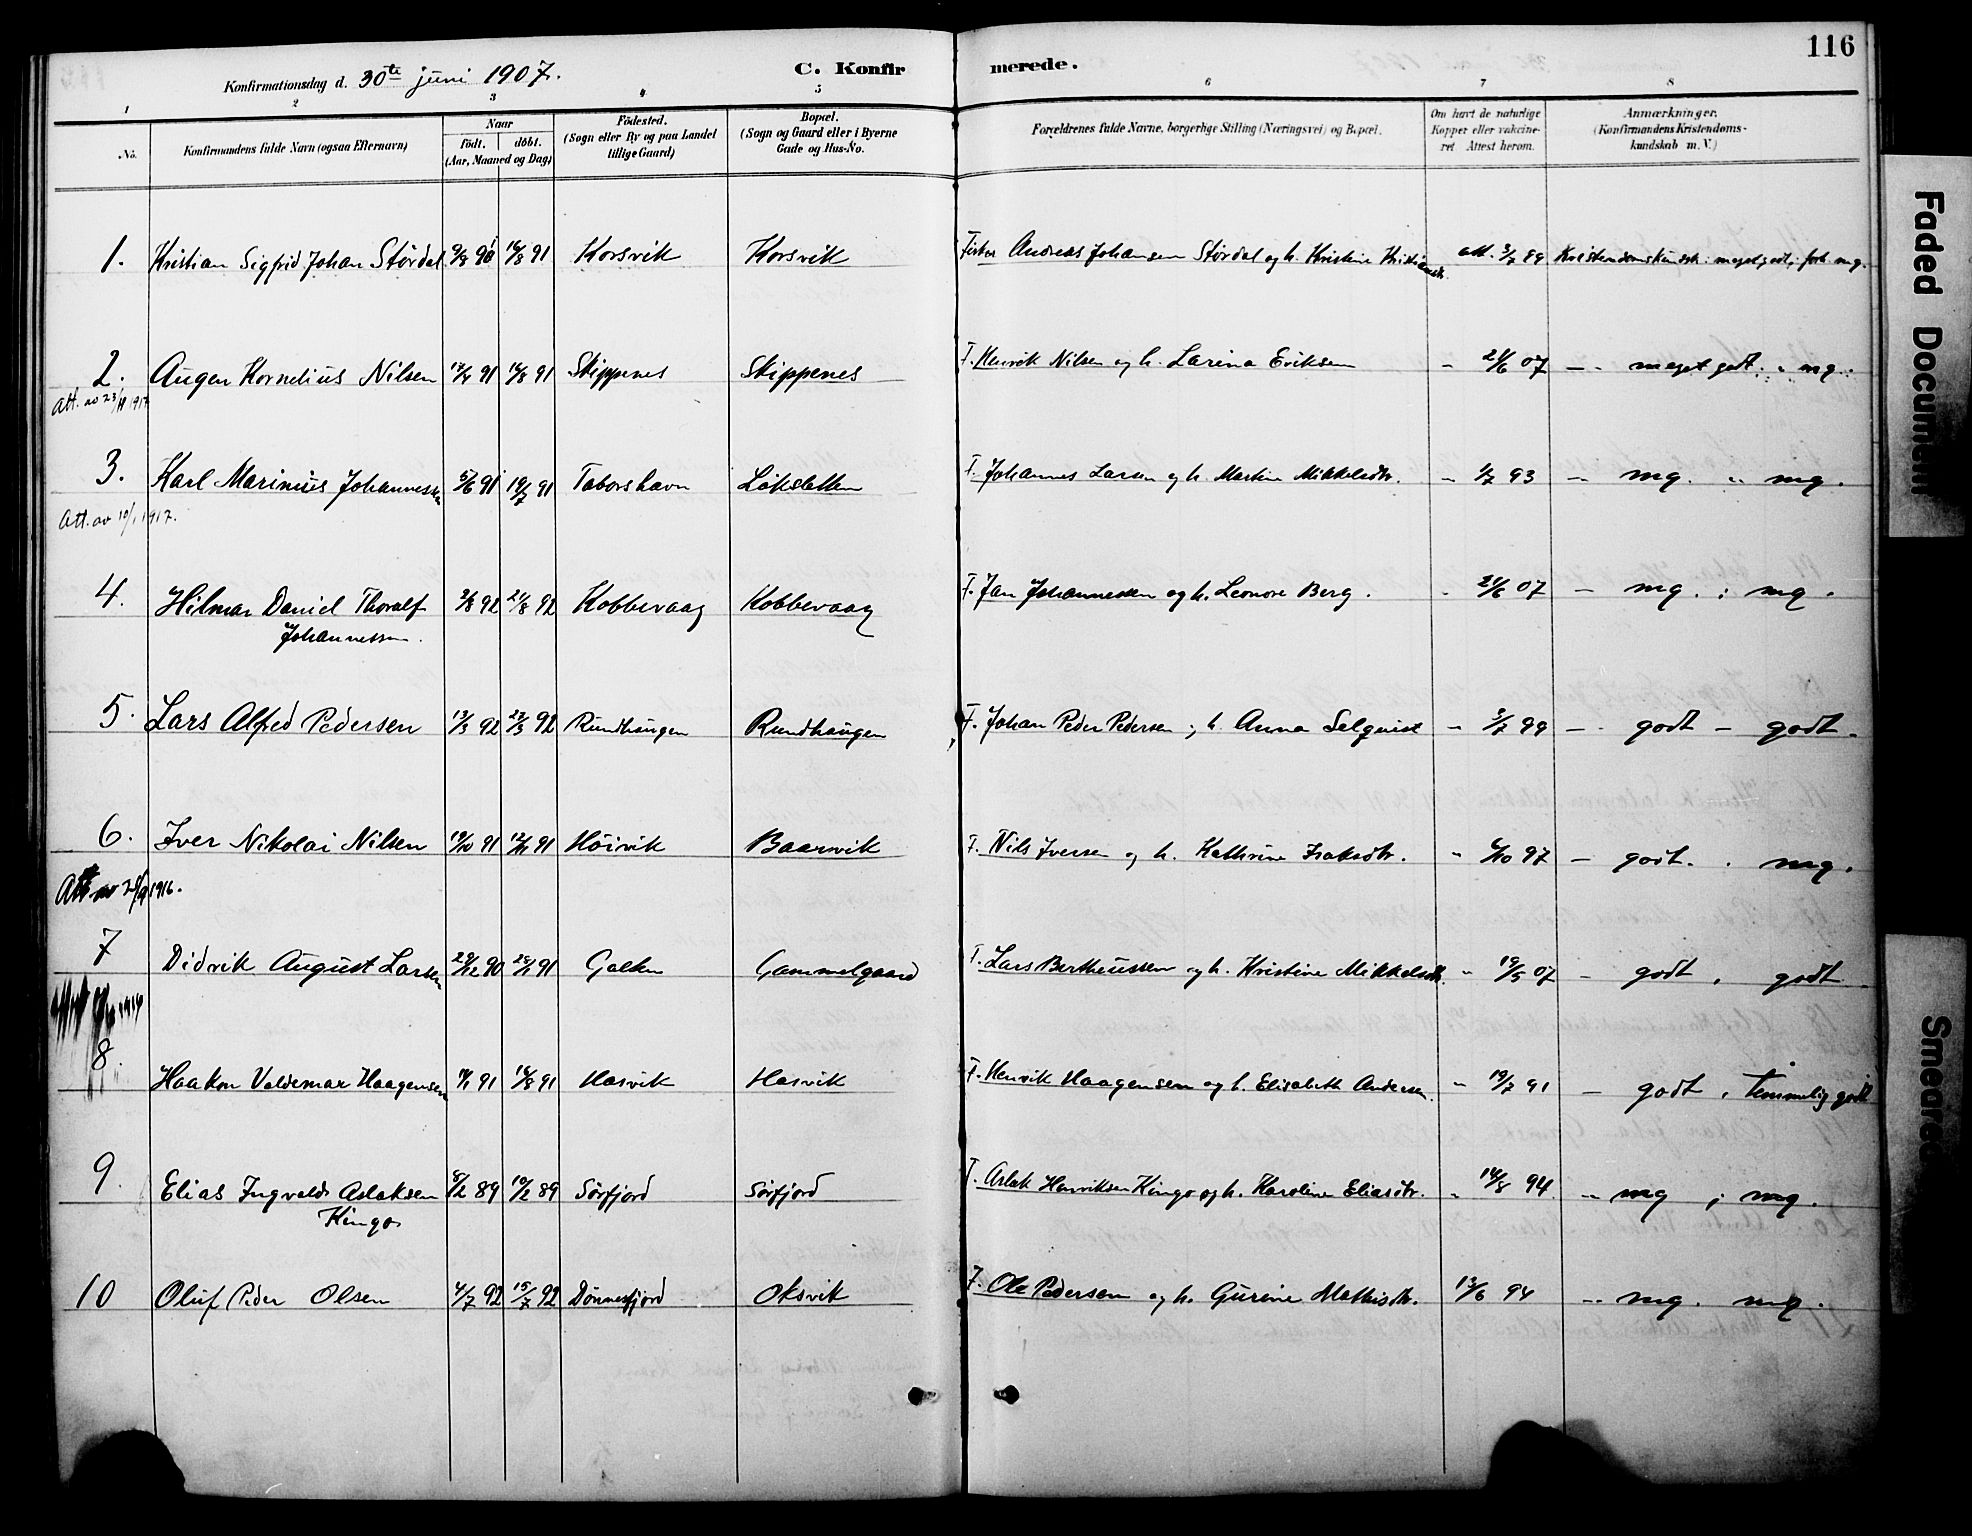 116
Konfirmationsdag d. 30te juni 1907.
C. Konfirmerede.
1 2 3 4 5 6 7 8
No.
Konfirmandens fulde Navn (ogsaa Efternavn)
Naar
födt. döbt.
(Aar, Maaned og Dag)
Födested.
(Sogn eller By og paa Landet
tillige Gaard)
Bopæl.
(Sogn og Gaard eller i Byerne
Gade og Hus-No.
Forældrenes fulde Navne, borgerlige Stilling (Næringsvei) og Bopæl.
Om havt de naturlige
Kopper eller vakcine-
ret Attest herom.
Anmærkninger.
(Konfirmandens Kristendoms-
kundskab m. V.)
1. Kristian Sigfrid Johan Stördal 9/8 90 16/8 91 Korsvik Korsvik Fisker Andreas Johansen Stördal og h. Kristine Kristiansdr. att. 3/7 99 Kristendomskundsk. meget godt; forh. mg.
2. Augen Kornelius Nilsen 17/4 91 16/8 91 Skippenes Skippenes F. Henrik Nilsen og h. Larina Eriksen " 21/6 07 — meget godt. " mg.
Att. av 23/11 1917
3. Karl Marinius Johannessen 5/6 91 19/7 91 Taborshavn Lökslatten F. Johannes Larsen og h. Martine Mikkelsdtr. " 1/7 93 — mg. " mg.
Att. av 10/1 1917.
4. Hilmar Daniel Thoralf 2/8 92 21/8 92 Kobbevaag Kobbevaag F. Jan Johannessen og h. Leonore Berg. " 21/6 07 — mg. : mg.
Johannessen.
5. Lars Alfred Pedersen 13/3 92 27/3 92 Rundhaugen Rundhaugen F. Johan Peder Pedersen ; h. Anna Selqvist " 3/7 99 — godt — godt.
6. Iver Nikolai Nilsen 19/10 91 12/11 91 Höivik Baarvik F. Nils Iversen og h. Kathrine Isaksdtr. " 6/10 97 — godt. . mg.
Att av 1916.
7 Didrik August Larsen 29/12 90 25/1 91 Galten Gammelgaard F. Lars Bertheussen og h. Kristine Mikkelsdtr. " 19/5 07 — godt . godt.
8. Haakon Valdemar Haagensen 91 16/8 91 Hasvik Hasvik F. Henrik Haagensen og h. Elisabeth Andersen. " 19/7 91 — godt . temmelig godt
9. Elias Ingvald Aslaksen 8/2 89 10/2 89 Sörfjord Sörfjord F. Aslak Henriksen Kingo og h. Karoline Eliasdtr. " 14/8 94 " mg ; mg.
Kingo
10 Oluf Peder Olsen 4/7 92 15/7 92 Dönnesfjord Oksvik F. Ole Pedersen og h. Gurine Mathisdtr. 13/6 94 " mg. mg.
Faded Document
Smeared